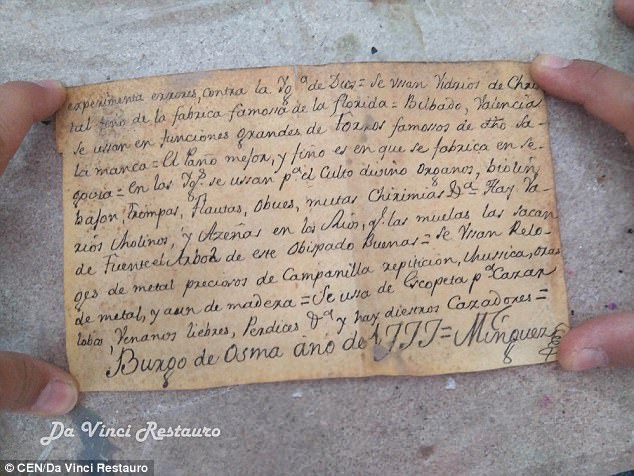 experimenta errores, contra la Yg.ª de Dios = Se vssan Vidrios de Chris
tal fino de la fabrica famossa de la florida = Bilbado, Valencia
se vssan en funciones grandes de Torxos famossos de dho Sa
lamanca = El Pano mejor, y fino es en que se fabrica en se
govia = en las Yg.s se vssan p.ª el Culto divino Organos, biolin
bajon, Trompas, flautas, Obues, mutas Chirimias &ª = Hay Va
rios Molinos, y Azeñas en los Rio, y las muelas las sacan
de Fuente el Arbol de este Obispado Buenas = Se Vssan Relo
ges de metal preciosos de Campanilla repiticion, Mussica, otros
de metal, y aun de madera = Se ussa de Escopeta p.ª Cazar
lobos, Venanos liebres, Perdices &ª y hay diestros Cazadores =
Burgo de Osma año de 1777 = Minguez
Da Vinci Restauro
©CEN/Da Vinci Restauro